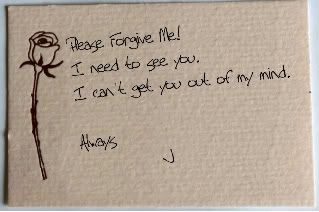 Please Forgive Me!
I need to see you.
I can't get you out of my mind.
Always
J